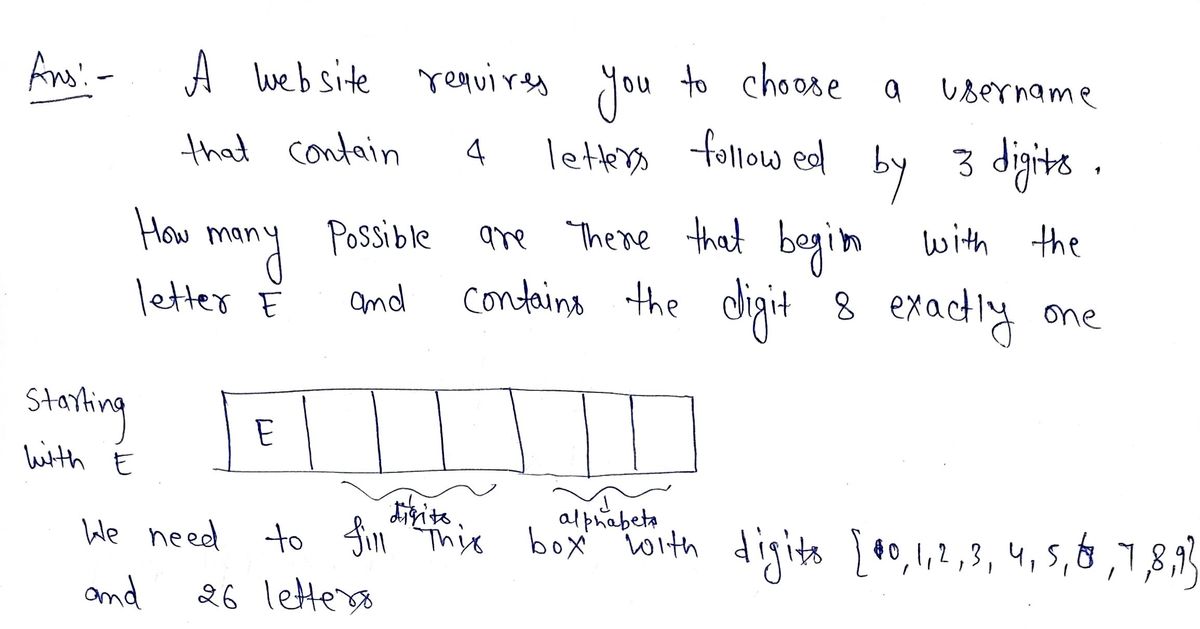 Ans:- A website requires you to choose a username
that contain 4 letters followed by 3 digits.
How many Possible are There that begin with the
letter E and contains the digit 8 exactly one
Starting
with E
E
digits alphabets
We need to fill This box with digits {0,1,2,3,4,5,6,7,8,9}
and 26 letters